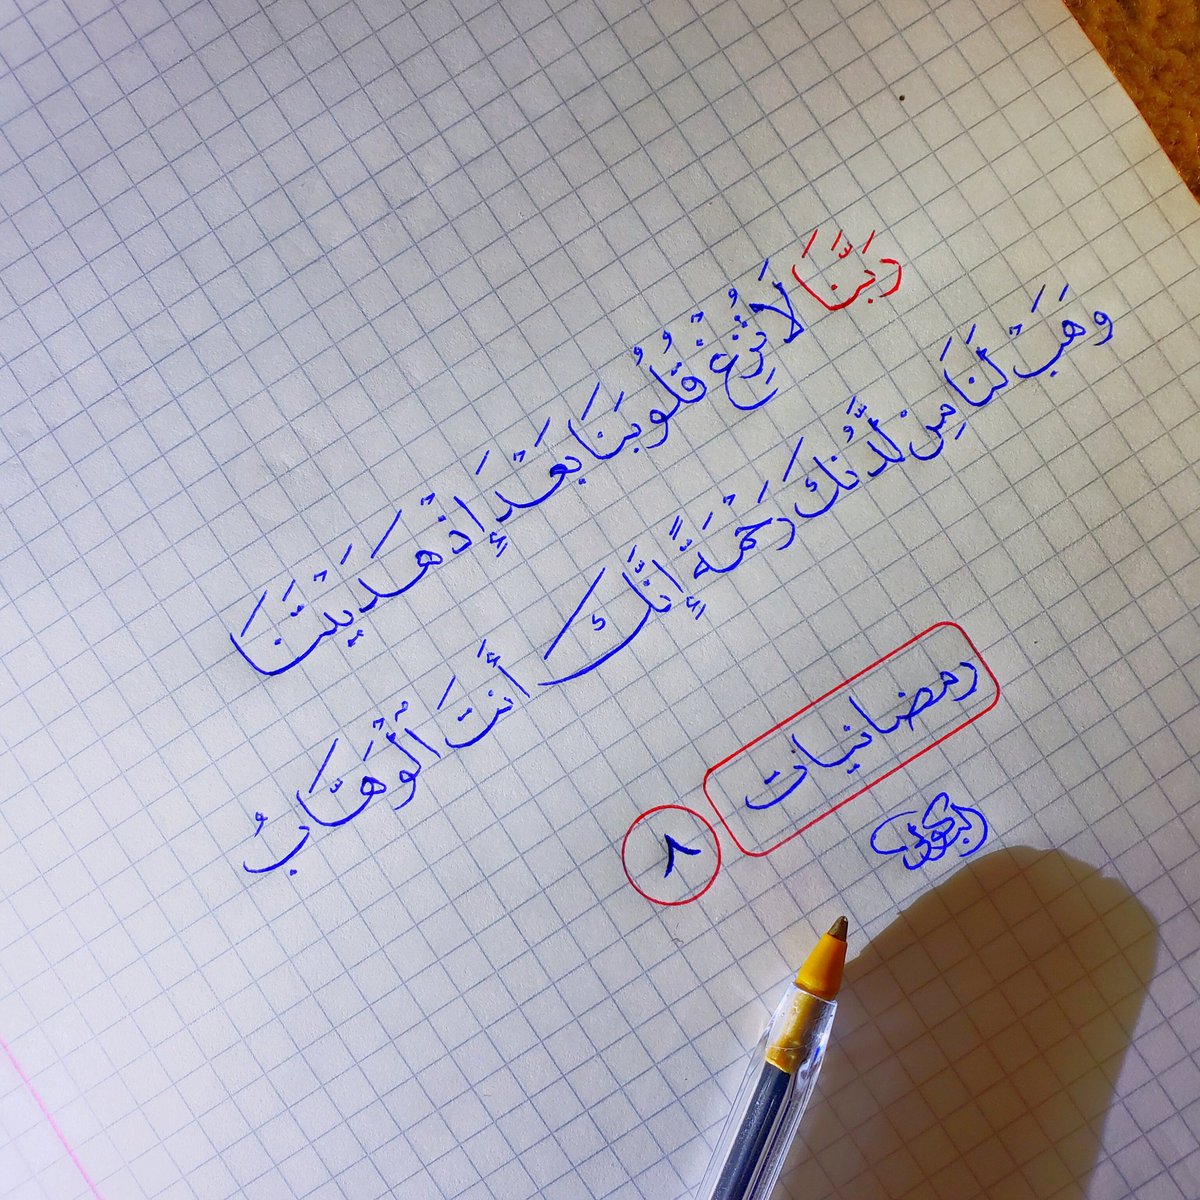 رَبَّنَا لَا تُزِغْ قُلُوبَنَا بَعْدَ إِذْ هَدَيْتَنَا
وَهَبْ لَنَا مِن لَّدُنكَ رَحْمَةً إِنَّكَ أَنتَ ٱلْوَهَّابُ
رمضانيات
٨